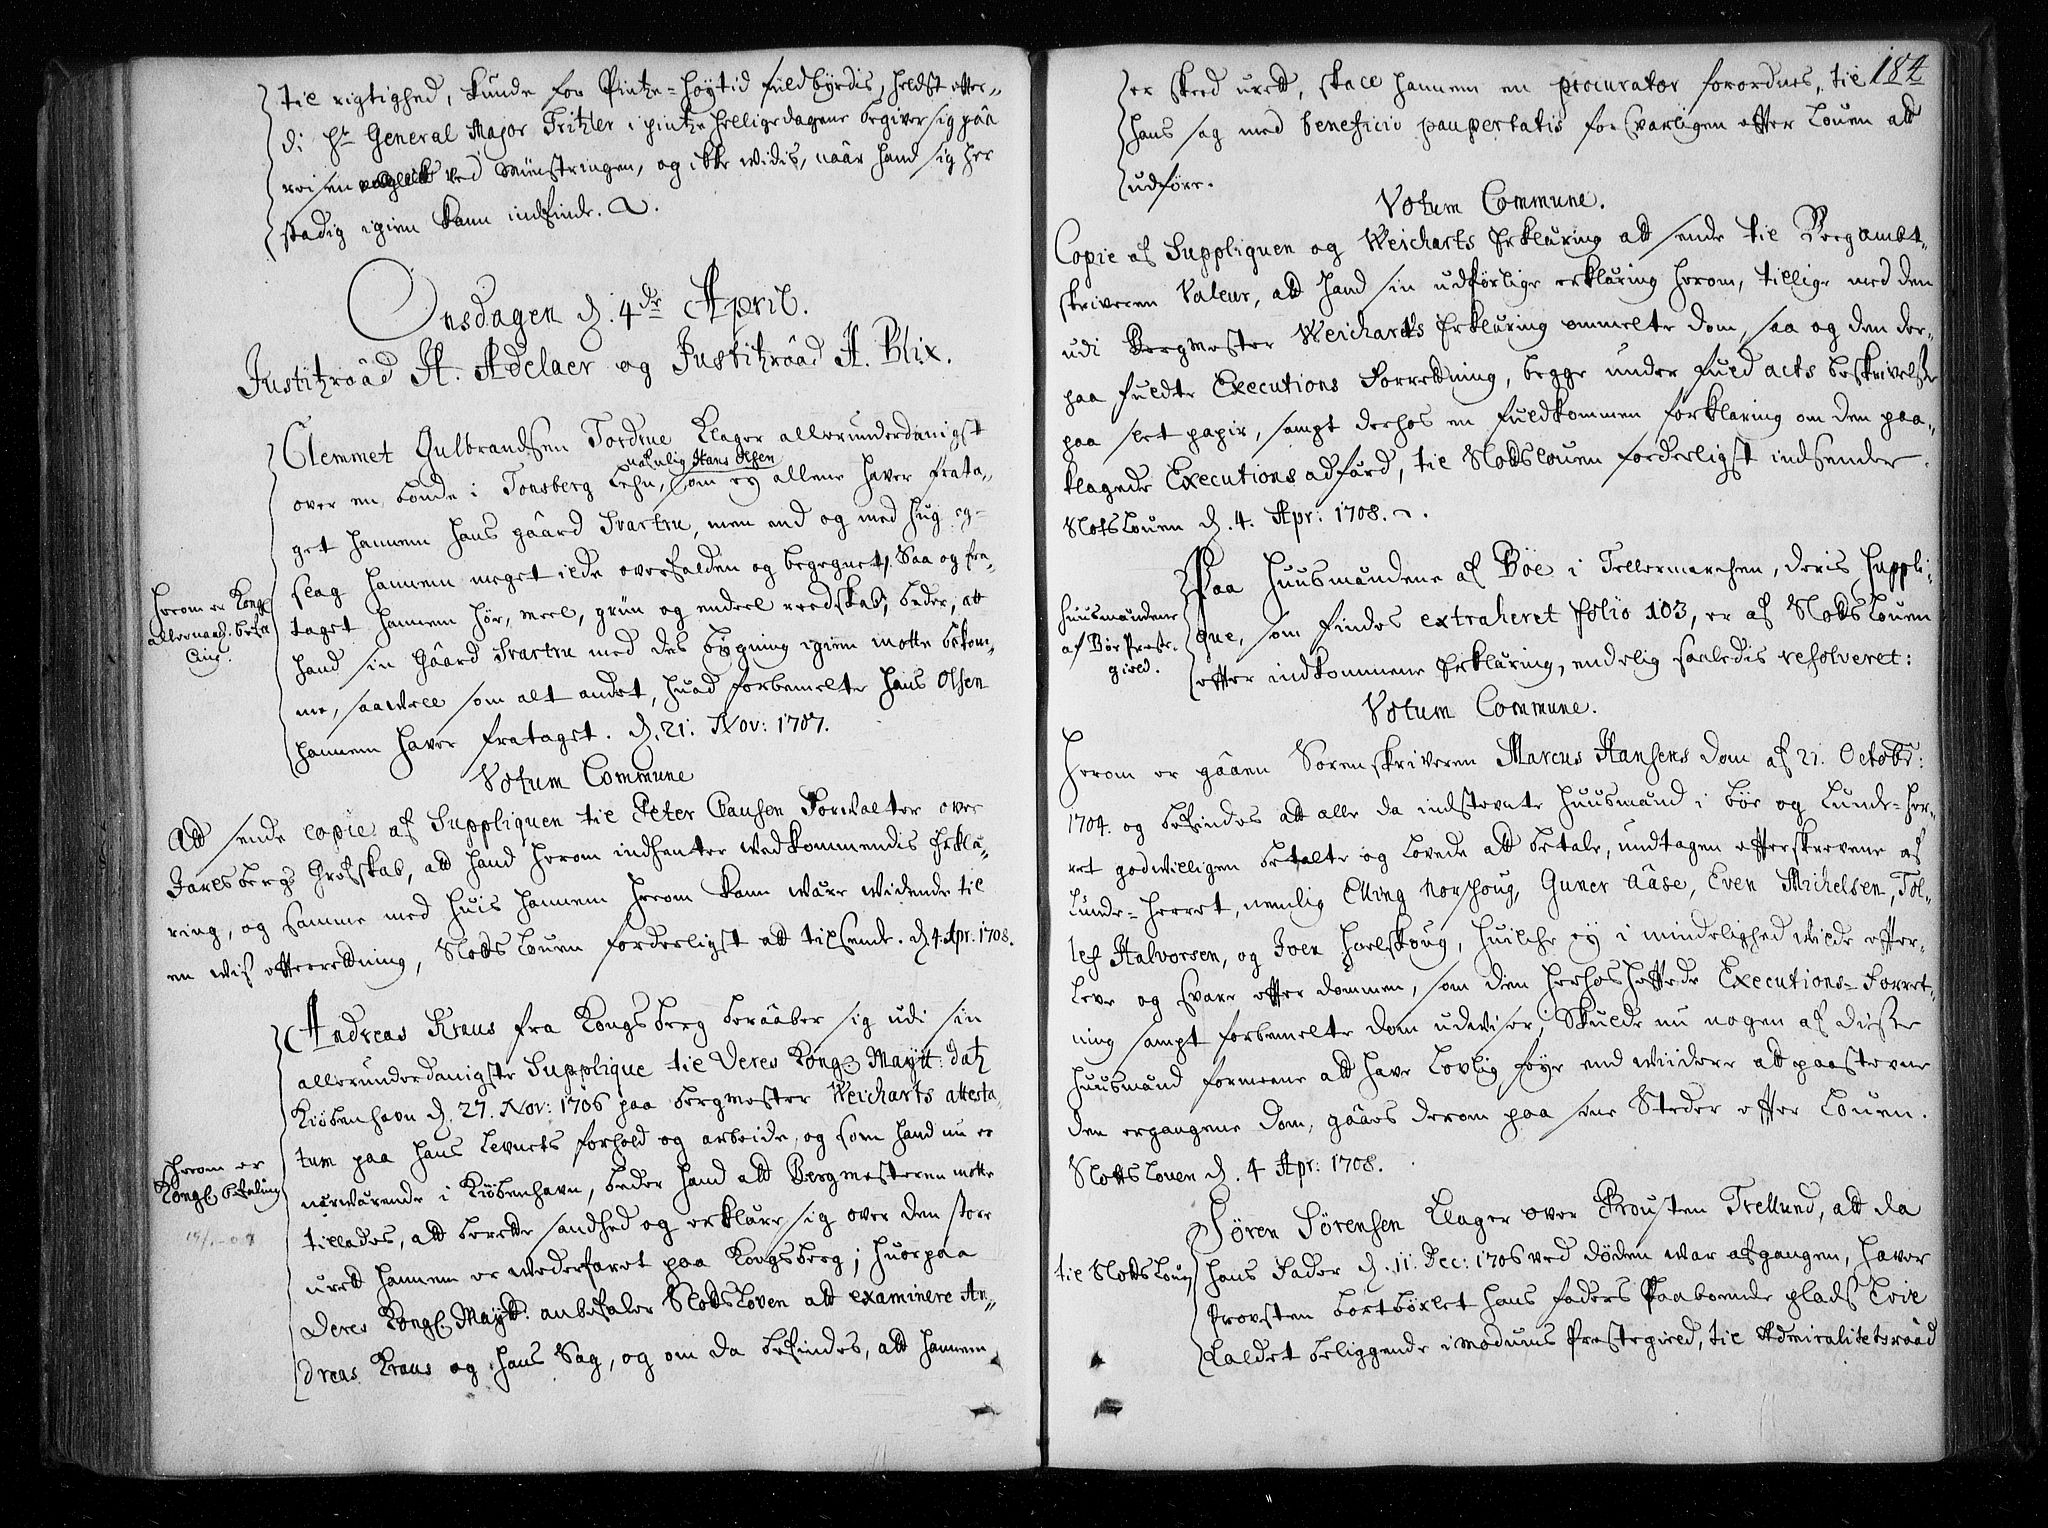 til rigtighed, kunde for Pintze-høytid fuldbyrdis, heldst efter-
di Hr General Major Tritzler i pintze helligedagene begiver sig paa
reisen ved Mynstringen, og ikke widis, naar hand sig her
stadig igien kann indfinde.
Onsdagen d. 4de April.
Justitzraad H. Adelaer og Justitzraad H. Blix.
Clemmet Gulbrandsen Tordrue klager allerunderdanigst
nafnlig Hans Olsen
over en bonde i Tonsberg Lehn, som ey allene haver frata-
get hannem hans gaard Svartru, men end og med hug og
slag hannem meget ilde overfalden og begegnet; Saa og fra-
taget hannem hør, meel, gryn og endeel reedskab; beder, att
hand sin Gaard Svartru med des bygning igien motte bekom-
me, saawell som alt andet, huad forbemelte Hans Olsen
hannem haver frataget. d. 21. Nov: 1707.
Herom er Kongl
allernaad. befal
Votum Commune
Att sende copie af Suppliquen til Peter Clausen Forvalter over
Jarlsbergs Grefskab, att hand herom indhenter wedkommendis Erklæ-
ring, og samme med huis hannem herom kann være widende til
en wis efterretning, Slotsloven forderligst att tilsende. d. 4. Apr: 1708.
Andreas Kraus fra Kongsberg beraaber sig udi sin
allerunderdanigste Supplique til Deres Kongl. Maytt: datz
Kiøbenhavn d. 27. Nov: 1706 paa bergmester Weicharts attesta-
tum paa hans levnets forhold og arbeide, og som hand nu er
nerværende i Kiøbenhavn, beder hand att Bergmesteren motte
tillades, att berette sandhed og erklære sig over den store
urett hannem er wederfaret paa Kongsberg; huorpaa
Deres Kongl. Maytt: anbefaler Slotsloven att examinere An-
dreas Kraus og hans Sag, og om da befindes, att hannem
Herom er
Kongl befaling
184
er skeed urett, skall hannem en procurator forordnes, til
hans sag med beneficio paupertatis forsvarligen efter Loven att
udføre.
Votum Commune.
Copie af Suppliquen og Weicharts Erklæring att sende til Bergambt-
skriveren Valeur, att hand sin udførlige erklæring herom, tillige med den
udi Bergmester Weicharts Erklæring ommelte dom, saa og den der-
paa fuldte Executions Forretning, begge under fuld acts beskrivelse
paa slet papir, sampt derhos en fuldkommen forklaring om den paa-
klagede Executions adfærd, til Slottsloven forderligst indsender.
Slotsloven d. 4. Apr: 1708.
Paa Huusmændene af Bøe i Tellemarchen, deris Suppli-
que, som findes extraheret folio 103, er af Slottsloven
efter indkommene Erklæring, endelig saaledis resolveret:
Huusmændene
af Bøe Præste-
gield.
Votum Commune.
Herom er gaaen Sorenskriveren Marcus Hansens dom af 21. Octobr:
1704. og befindes att alle da indstevnte huusmænd i Bøe og Lunde-her-
ret godwilligen betalte og lovede att betale, undtagen efterskrevene af
Lunde-herret, nemlig Elling Norhoug, Guner Aase, Even Michelsen, Tol-
lef Halvorsen, og Joen Haelskoug, huilche ey i mindelighed wilde efter-
leve og svare efter dommen, som den herhoshæftede Executions-Forret-
ning sampt forbemelte dom udwiser; Skulde nu nogen af disse
huusmænd formeene att have lovlig føye end wiidere att paastevne
den ergangene dom, gaaes derom paa sine Steder efter Loven.
Slottsloven d. 4 Apr: 1708.
Søren Sørensen klager over Prousten Trellund, att da
hans Fader d. 11. Dec: 1706 ved døden war afgangen, haver
Provsten bortbøxlet hans faders Paaboende plads Evie
kaldet beliggende i Modums Prestegield, til Admiralitetsraad
til Slotts Lov